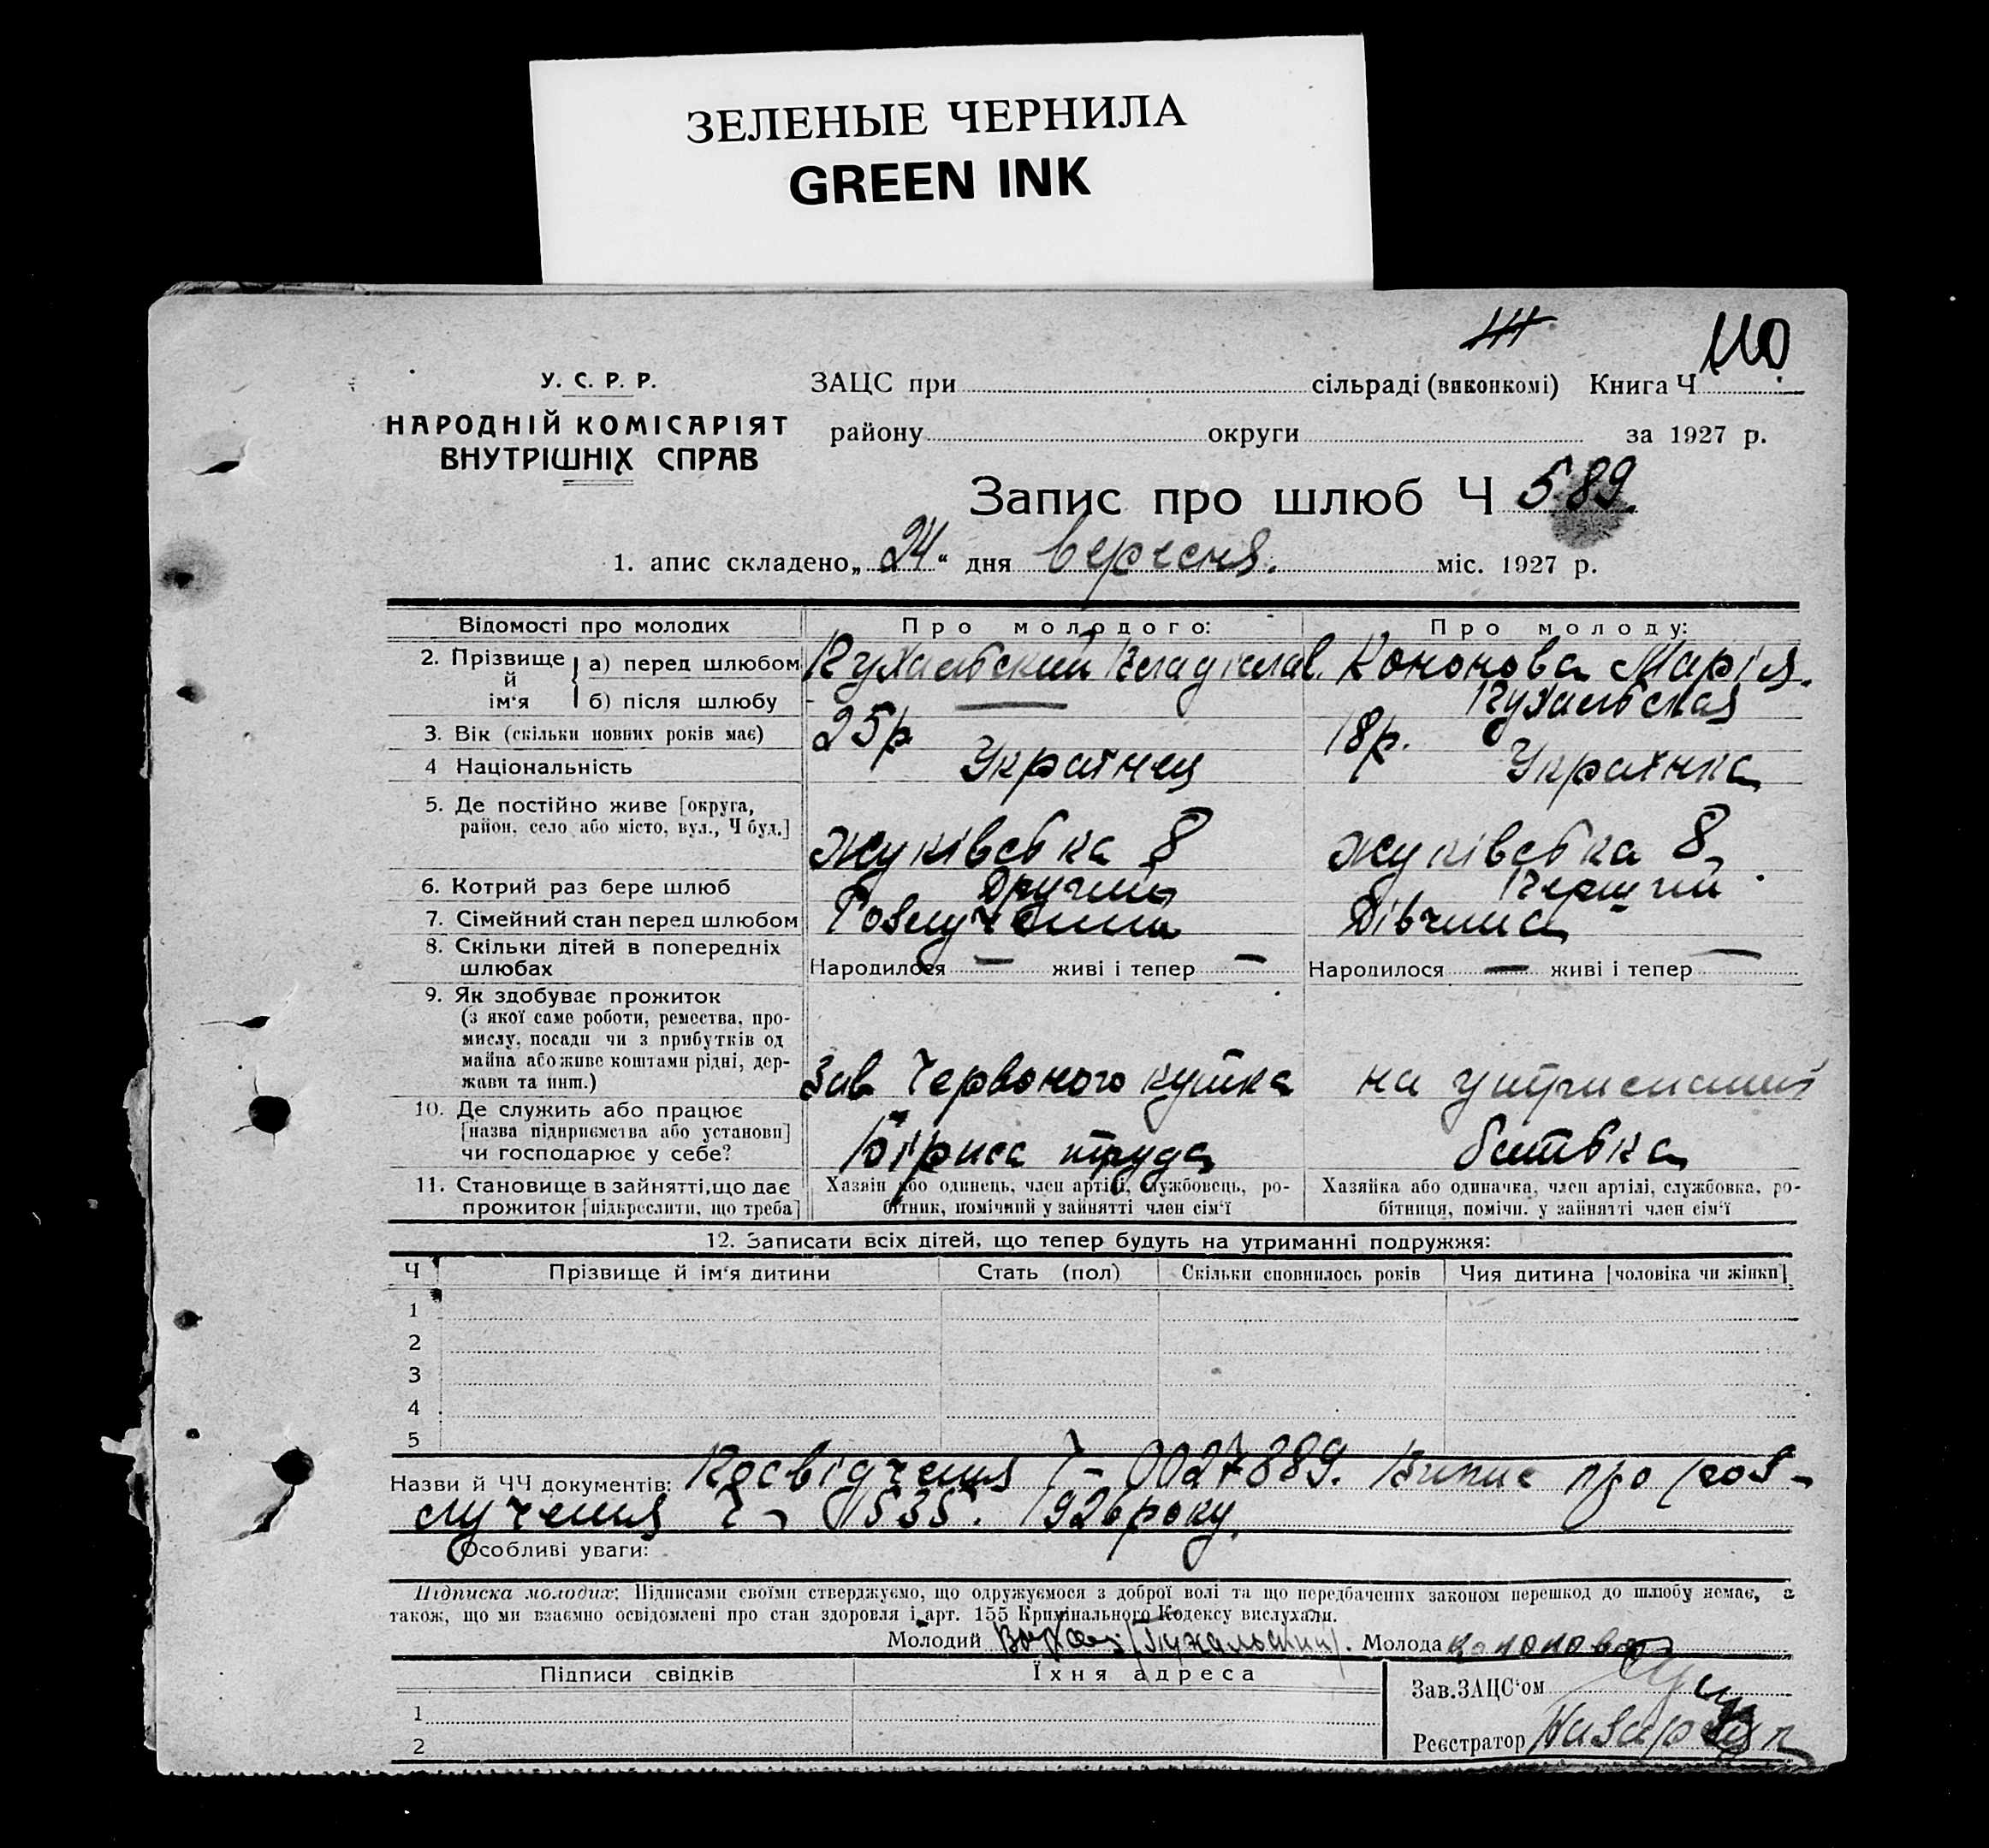 ЗЕЛЕНЫЕ ЧЕРНИЛА
GREEN INK
111
110
У. С. Р. Р.
НАРОДНІЙ КОМІСАРІЯТ
ВНУТРІШНІХ СПРАВ
ЗАЦС при сільраді (виконкомі) Книга Ч
району округи за 1927 р.
Запис про шлюб Ч 589.
1. апис складено „24“ дня вересня. міс. 1927 р.
Відомості про молодих Про молодого: Про молоду:
2. Прізвище й ім'я а) перед шлюбом Пухальский Владіслав. Кононова Марія.
б) після шлюбу — Пухальская
3. Вік (скільки повних років має) 25р 18р.
4 Національність Украінец Украінка
5. Де постійно живе [округа,
район, село або місто, вул., Ч буд.] Жуківська 8 Жуківська 8
6. Котрий раз бере шлюб Другий Перший
7. Сімейний стан перед шлюбом Розлучений Дівчина
8. Скільки дітей в попередніх
шлюбах Народилося — живі і тепер — Народилося — живі і тепер —
9. Як здобуває прожиток
(з якої саме роботи, ремества, про-
мислу, посади чи з прибутків од
майна або живе коштами рідні, дер-
жави та инш.) Зав Червоного кутка на утриманні
10. Де служить або працює
[назва підприємства або установи]
чи господарює у себе? Біржа труда батька
11. Становище в зайнятті, що дає
прожиток [підкреслити, що треба]
Хазяін або одинець, член артілі, службовець, ро-
бітник, помічний у зайнятті член сім'ї
Хазяйка або одиначка, член артілі, службовка, ро-
бітниця, помічн. у зайнятті член сім'ї
12. Записати всіх дітей, що тепер будуть на утриманні подружжя:
Ч Прізвище й ім'я дитини Стать (пол) Скільки сповнилось років Чия дитина [чоловіка чи жінки]
1
2
3
4
5
Назви й ЧЧ документів: Посвідчення Ч– 0027889. Випис про роз-
лучення Ч– 1535. 1926 року.
Особливі уваги:
Підписка молодих: Підписами своїми стверджуємо, що одружуємося з доброї волі та що передбачених законом перешкод до шлюбу немає, а
також, що ми взаємно освідомлені про стан здоровля і арт. 155 Кримінального Кодексу вислухали.
Молодий (Пухальский). Молода Кононова
Підписи свідків Їхня адреса
Зав. ЗАЦС'ом
1
Реєстратор
2